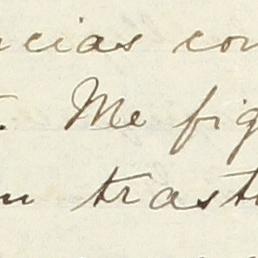 ncias con
. Me fig
n trast